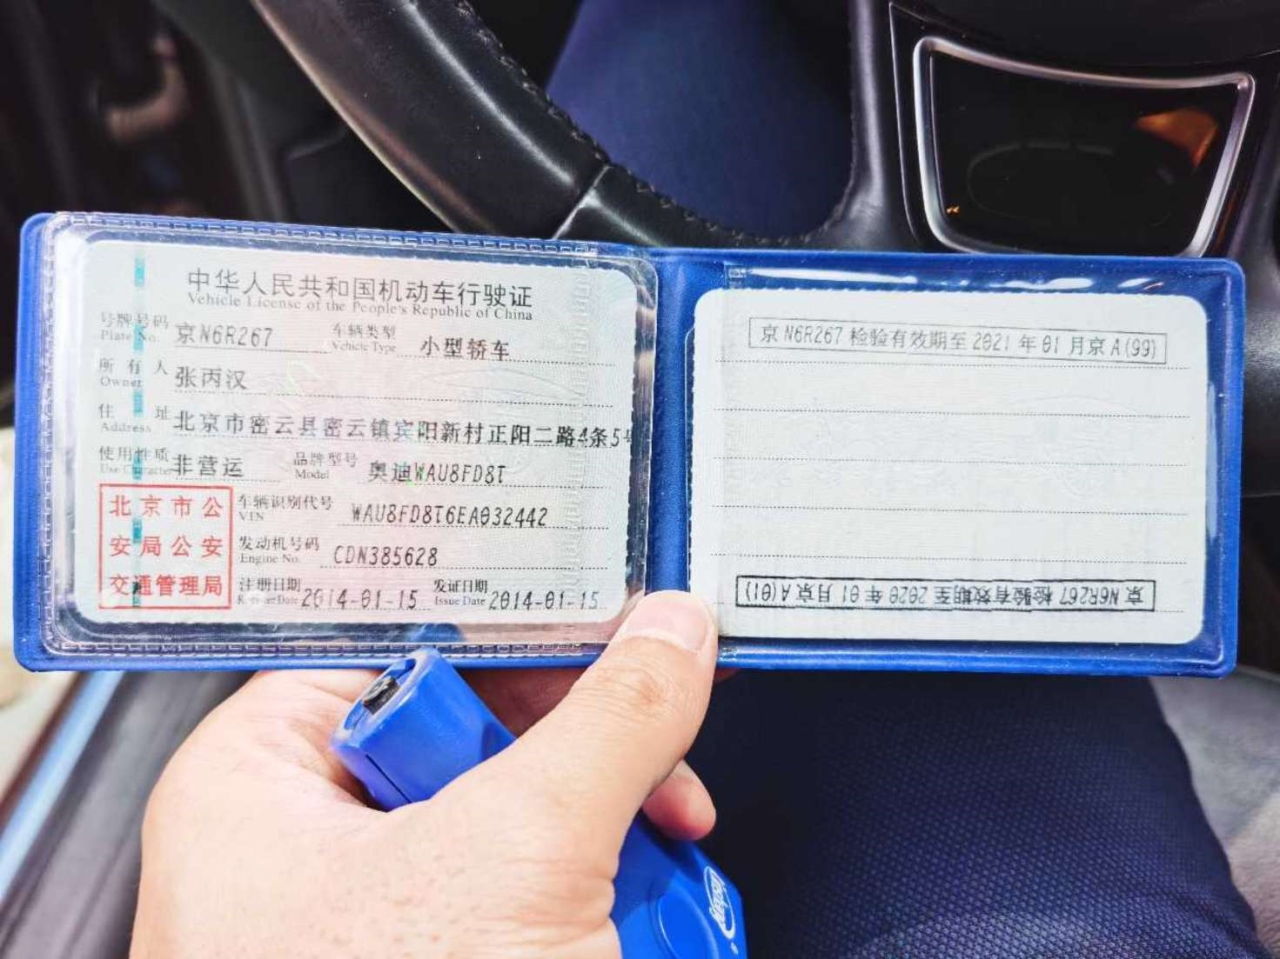 中华人民共和国机动车行驶证
Vehicle License of the People's Republic of China
号牌号码 京N6R267 车辆类型 小型轿车
Plate No. Vehicle Type
所有人 张丙汉
Owner
住址 北京市密云县密云镇宾阳新村正阳二路4条5号
Address
使用性质 非营运 品牌型号 奥迪WAU8FD8T
Use Character Model
北京市公安局公安交通管理局
车辆识别代号 WAU8FD8T6EA032442
VIN
发动机号码 CDN385628
Engine No.
注册日期 2014-01-15 发证日期 2014-01-15
Register Date Issue Date
京N6R267 检验有效期至 2021 年 01 月京 A(99)
京N6R267 检验有效期至 2020 年 01 月京 A(01)